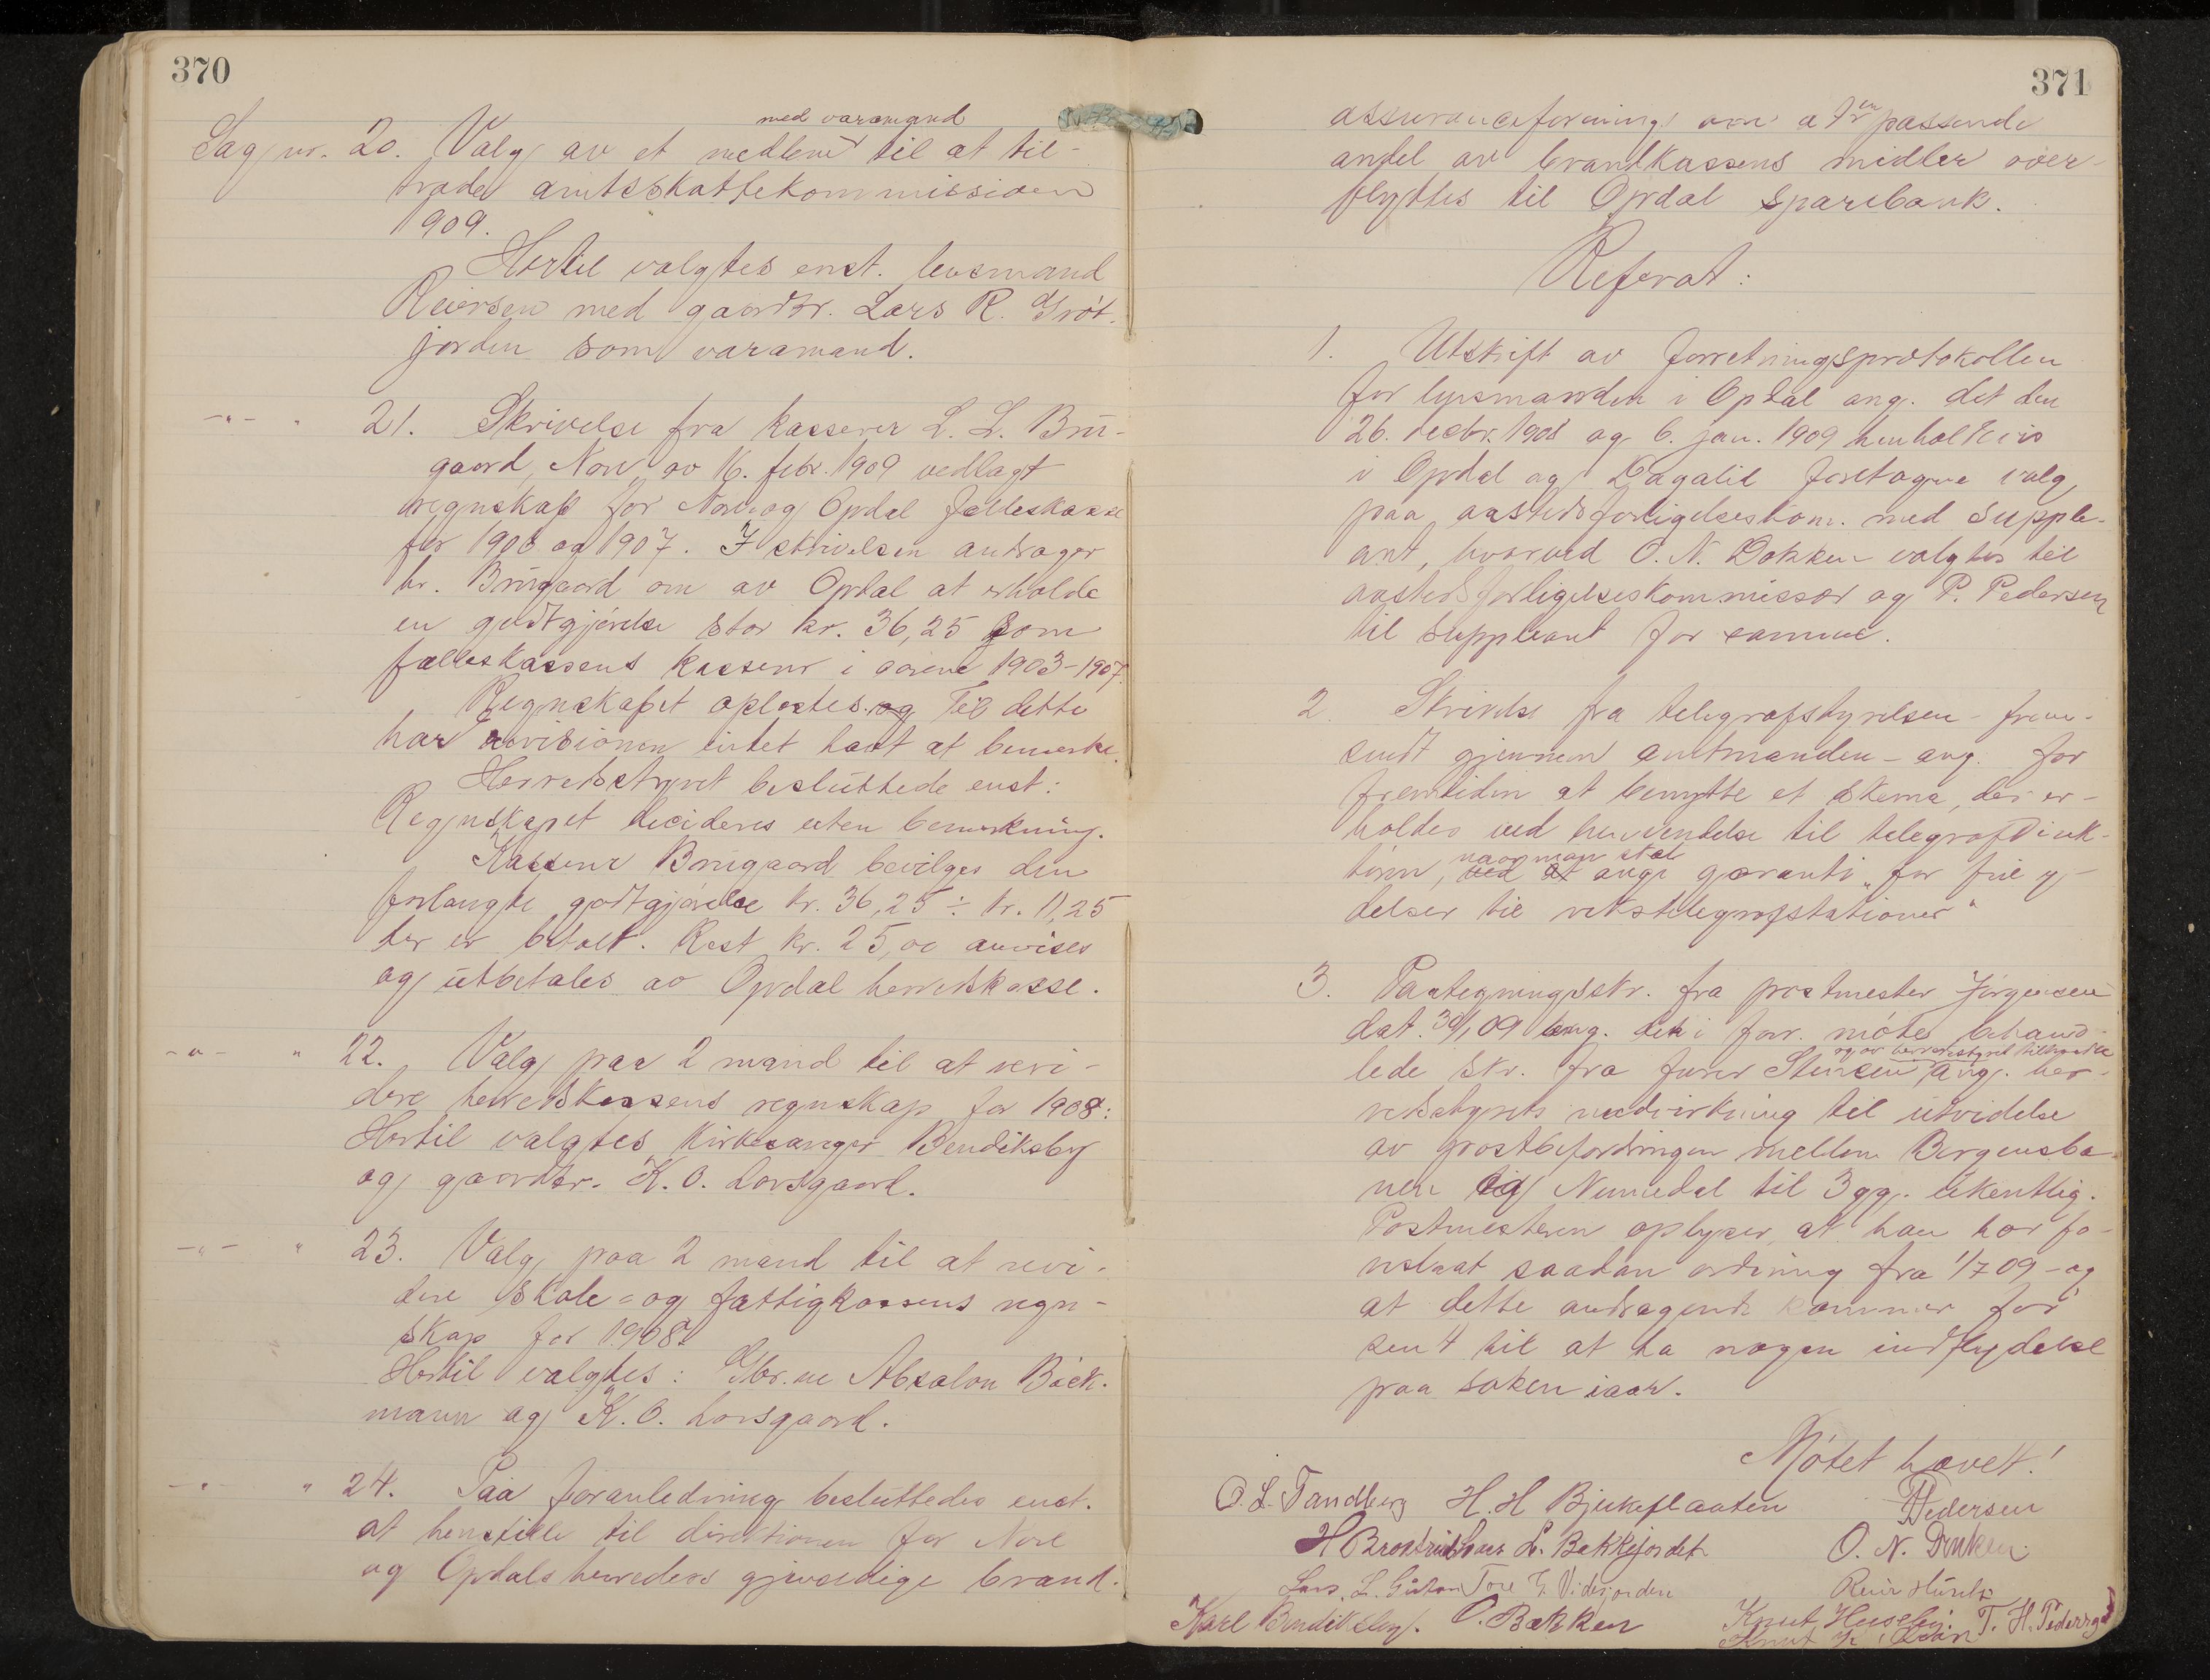 370
med varamand
Sag nr. 20. Valg av et medlem til at til-
træde amtsskattekommissionen
1909.
Hertil valgtes enst. lensmand
Reiersen med gaardbr. Lars R. Gröt-
jorden som varamand.
-"- " 21. Skrivelse fra kasserer L. L. Brü-
gaard, Nore av 16. febr. 1909 vedlagt
regnskap for Nore og Opdal fælleskasse
for 1906 og 1907. I skrivelsen andrager
hr. Brügaard om av Opdal at erholde
en godtgjörelse stor kr. 36,25 som
fælleskassens kasserer i aarene 1903-1907.
Regnskapet oplæstes. og Til dette
har revisionen intet havt at bemerke.
Herredsstyret besluttede enst:
Regnskapet decideres uten bemerkning.
Kasserer Brügaard bevilges den
forlangte godtgjörelse kr. 36,25 ÷ kr. 11,25
der er betalt. Rest kr. 25,00 anvises
og utbetales av Opdal herredskasse.
-"- " 22. Valg paa 2 mand til at revi-
dere herredskassens regnskap for 1908:
Hertil valgtes kirkesanger Bendiksby
og gaardbr. K. O. Lovsgaard.
-"- " 23. Valg paa 2 mand til at revi-
dere skole- og fattigkassens regn-
skap for 1908.
Hertil valgtes: Gbr.ne Absalon Bäck-
mann og K. O. Lovsgaard.
-"- " 24. Paa foranledning besluttedes enst.
at henstille til direktionen for Nore
og Opdals herreders gjensidige brand-
371
assuranceforening om at en passende
andel av brandkassens midler over-
flyttes til Opdal sparebank.
Referat:
1. Utskrift av forretningsprotokollen
for lensmanden i Opdal ang. det den
26. decbr. 1908 og 6. jan. 1909 henholdsvis
i Opdal og Dagalid foretagne valg
paa aastedsforligelseskom. med supple-
ant, hvorved O. N. Dokken valgtes til
aastedsforligelseskommissær og P. Pedersen
til suppleant for samme.
2. Skrivelse fra telegrafstyrelsen - frem-
sendt gjennem amtmanden - ang. for
fremtiden at benytte et skema, der er-
holdes ved henvendelse til telegrafdirek-
naar man skal
tören, ved at avgi garanti "for frie y-
delser til rikstelegrafstationer"
3. Paategningsskr. fra postmester Jörgensen
dat. 30/1 09 ang. det i forr. möte behand-
og av herredsstyret tiltraadte
lede skr. fra furer Stensen ang. her-
redsstyrets medvirkning til utvidelse
av postbefordringen mellem Bergensba-
nen og Numedal til 3 gg. ukentlig.
Postmesteren oplyser, at han har fo-
reslaat saadan ordning fra 1/7 09 - og
at dette andragende kommer for
sent til at ha nogen indflydelse
paa saken iaar.
Mötet hævet!
O. L. Tandberg H. H Bjerkeflaaten P Pedersen
H Brostrud Lars L. Bakkejordet O. N. Dokken
Lars. L. Tore G. Videsjorden
Karl Bendiksby. O. Bakken Knut Huseby. T. H. Pedersg
Knut